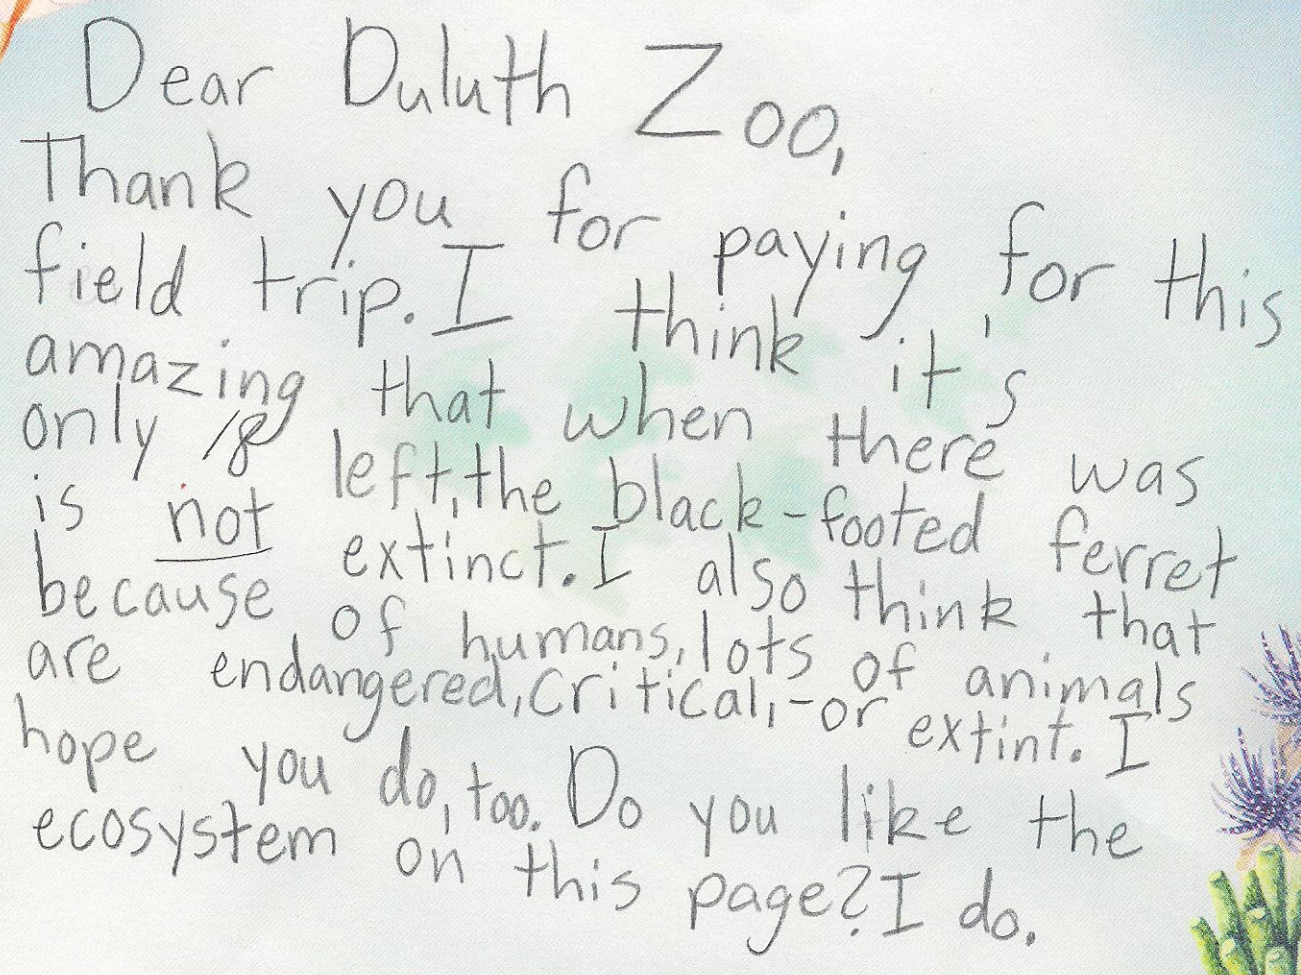 Dear Duluth Zoo,
Thank you for paying for this
field trip. I think it's
amazing that when there was
only 18 left, the black-footed ferret
is not extinct. I also think that
because of humans, lots of animals
are endangered, critical, -or extint. I
hope you do, too. Do you like the
ecosystem on this page? I do.